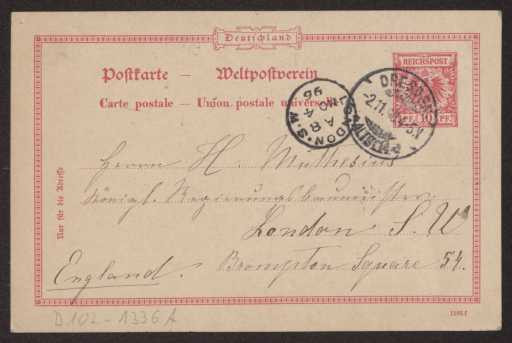 Deutschland
Postkarte — Weltpostverein
Carte postale — Union postale universelle
REICHSPOST
10 PF
DRESDEN
ALTST.
2.11.
LONDON. S.W.
A 8
NO 4
96
Herrn H. Muthesius
Königl. Regierungsbaumeister
London S. W
England. Brompton Square 54.
Nur für die Adresse
D102-1336A